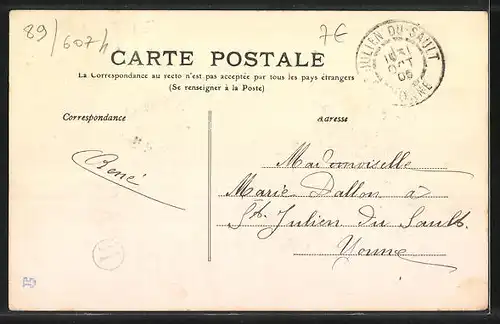 89/607h
7€
CARTE POSTALE
La Correspondance au recto n'est pas acceptée par tous les pays étrangers
(Se renseigner à la Poste)
JULIEN DU SAULT
OCT
05
YONNE
Correspondance
Adresse
René
Mademoiselle
Marie Dallon à
St. Julien du Sault.
Yonne